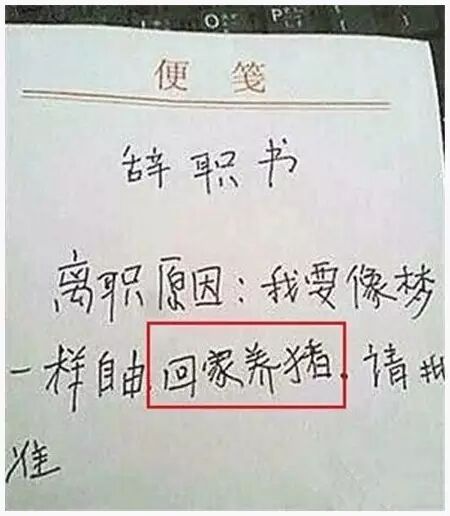 便笺
辞职书
离职原因：我要像梦
一样自由,回家养猪.请批
准